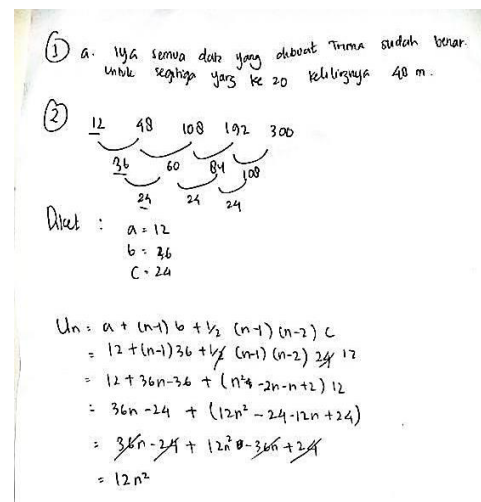 ① a. Iya semua data yang dibuat Trima sudah benar.
untuk segitiga yang ke 20 kelilingnya 40 m.
②
12 48 108 192 300
36 60 84 108
24 24 24
Diket : a = 12
b = 36
C = 24
Un = a + (n-1) b + 1/2 (n-1) (n-2) C
= 12 + (n-1) 36 + 1/2 (n-1) (n-2) 24 12
= 12 + 36n - 36 + (n² - 2n - n + 2) 12
= 36n - 24 + (12n² - 24 - 12n + 24)
= 36n - 24 + 12n² - 36n + 24
= 12n²